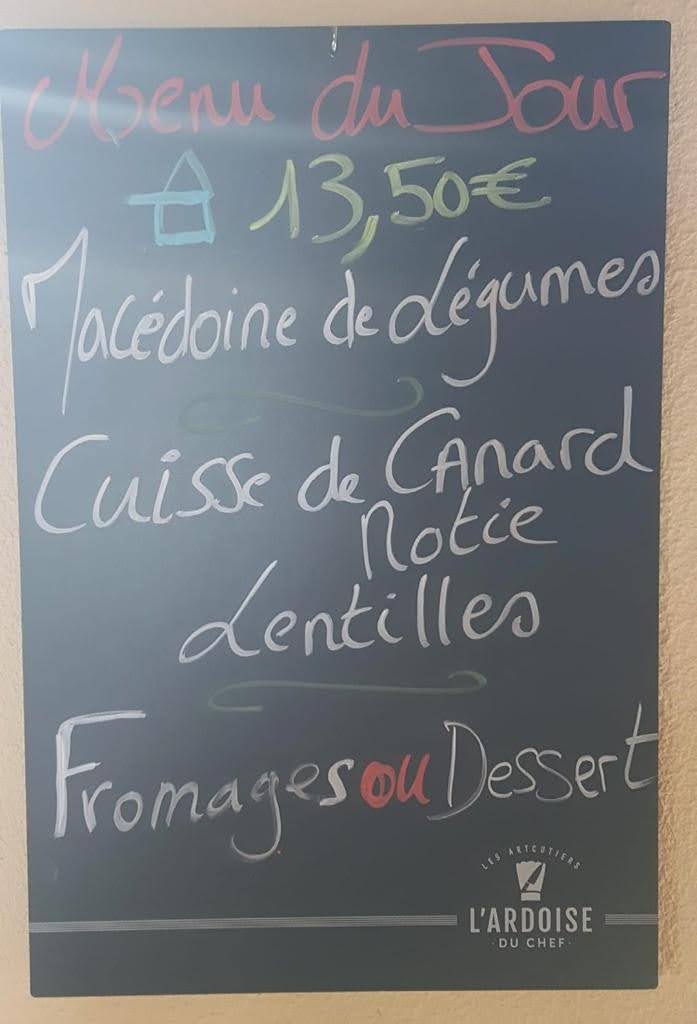 Menu du Jour
13,50€
Macédoine de Légumes
Cuisse de Canard
Rotie
Lentilles
Fromages ou Dessert
LES ARTCUTIERS
L'ARDOISE
DU CHEF